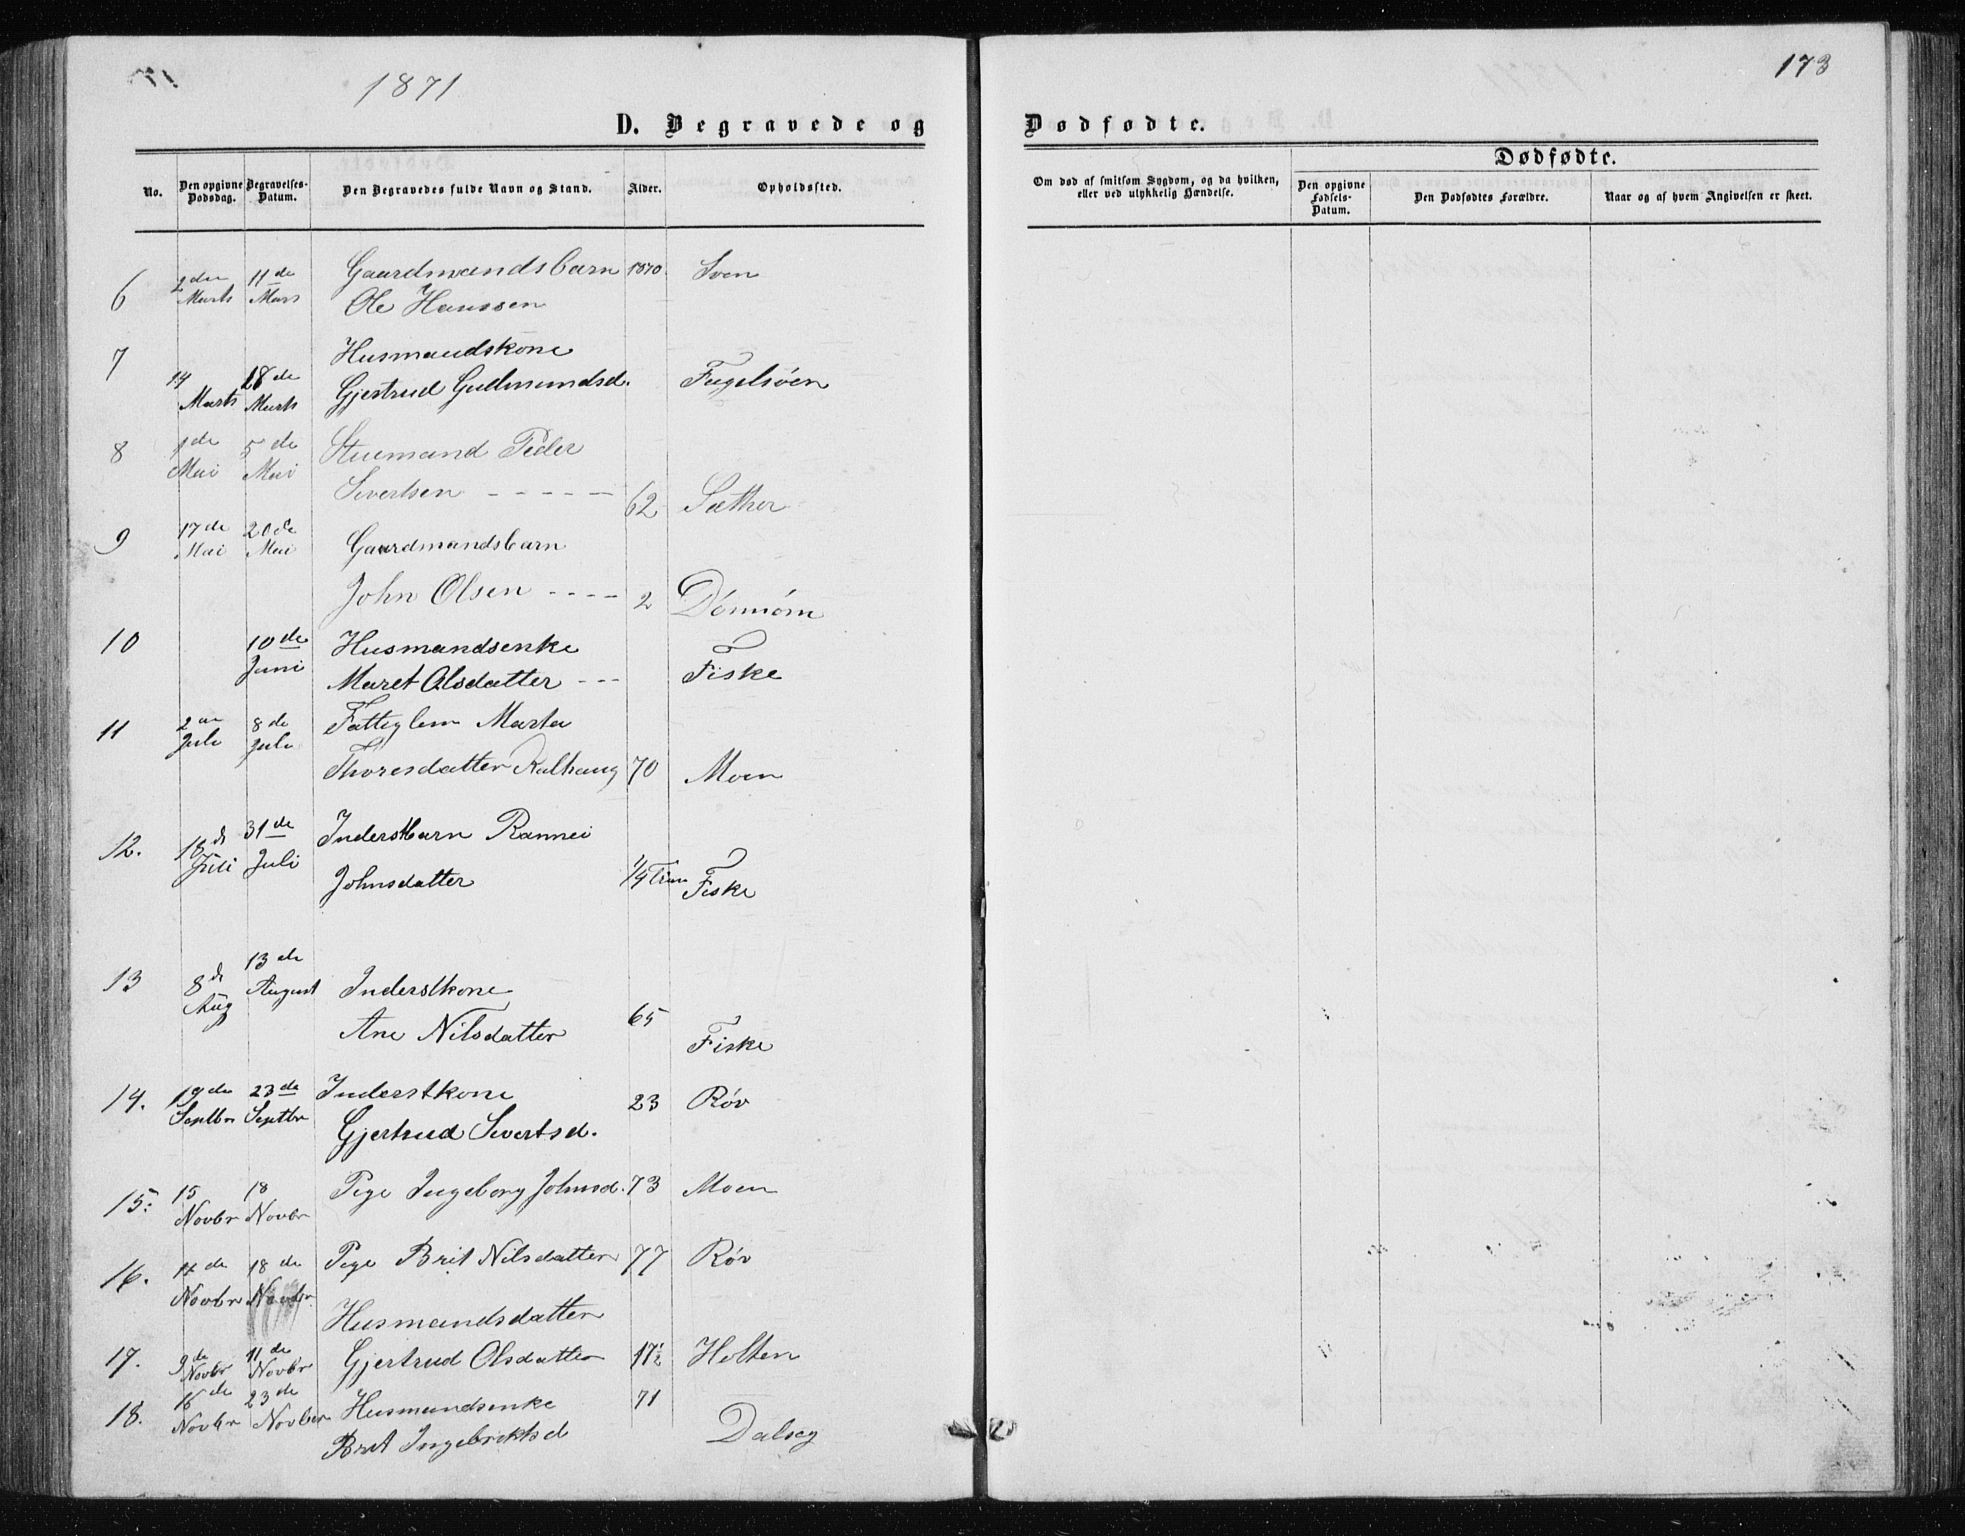 1871
173
D. Begravede og Dødfødte.
No.
Den opgivne Dødsdag.
Begravelses-Datum.
Den Begravedes fulde Navn og Stand.
Alder.
Opholdssted.
Om død af smitsom Sygdom, og da hvilken, eller ved ulykkelig Hændelse.
Dødfødte.
Den opgivne Fødsels-Datum.
Den Dødfødtes Forældre.
Naar og af hvem Angivelsen er skeet.
6 2den Marts 11de Mars Gaardmandsbarn 1870. Sven
Ole Hanssen
7 14 Marts 18de Marts Husmandskone
Gjertrud Gudmundsd. Fugelsøen
8 1de Mai 5de Mai Stuemand Peder
Sivertsen - - - - - 62 Sæther
9 17de Mai 20de Mai Gaardmandsbarn
John Olsen - - - - 2 Dønnøm
10 10de Juni Husmandsenke
Maret Olsdatter - - - Fiske
11 2den Juli 8de Juli Fattiglem Marta
Thoresdatter Kalhaug 70 Moen
12. 18de Juli 31de Juli Inderstbarn Rannei
Johnsdatter 1/4 Fiske
13 8de Aug 13de August Inderstkone
Ane Nilsdatter 65 Fiske
14. 19de Septbr 23de Septbr Inderstkone 23 Røv
Gjertrud Sivertsd.
15. 15 Novbr 18 Novbr Pige Ingeborg Johnsd. 73 Moen
16. 14de Novbr 18de Novbr Pige Brit Nilsdatter 77 Røv
Husmandsdatter
17. 9de Novbr 11de Novbr Gjertrud Olsdatter 17½ Holten
18. 16de Novbr 23de Novber Husmandsenke 71
Brit Ingebriktsd Dalseg